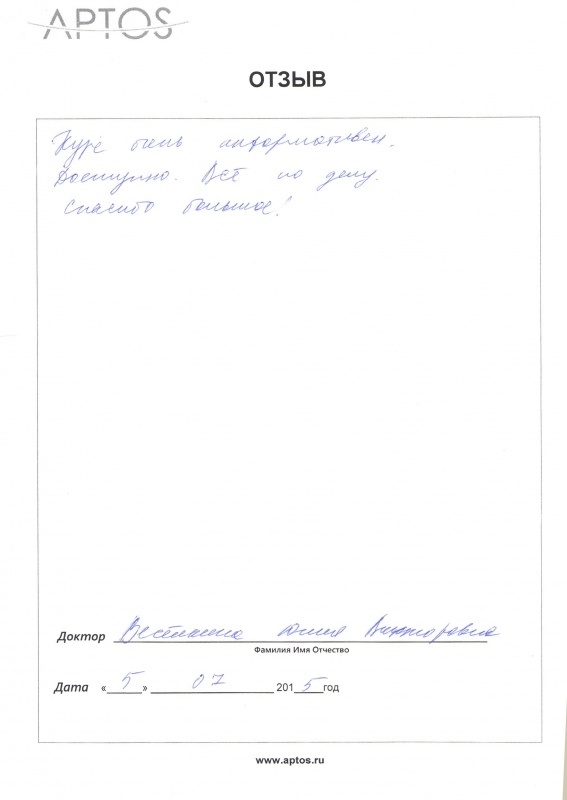 APTOS
ОТЗЫВ
Курс очень информативен.
Доступно. Всё по делу.
Спасибо большое!
Доктор Юлия Викторовна
Фамилия Имя Отчество
Дата «5» 07 2015 год
www.aptos.ru